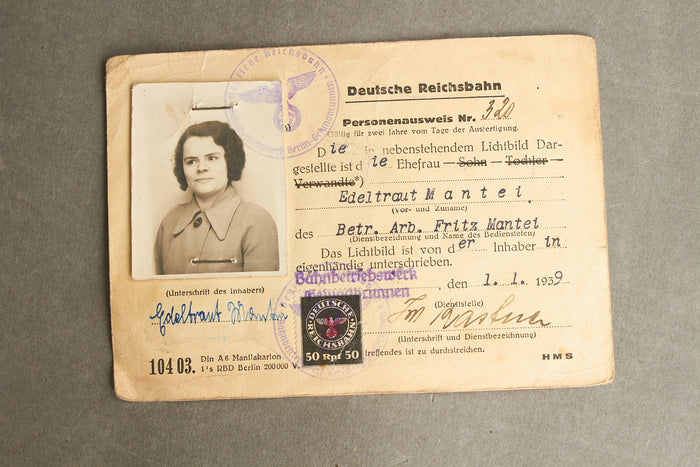 Deutsche Reichsbahn
Personenausweis Nr. 320
Gültig für zwei Jahre vom Tage der Ausfertigung.
Die in nebenstehendem Lichtbild Dar-
gestellte ist die Ehefrau — Sohn — Tochter —
Verwandte*)
Edeltraut Mantei
(Vor- und Zuname)
des Betr. Arb. Fritz Mantei
(Dienstbezeichnung und Name des Bediensteten)
Das Lichtbild ist von der Inhaberin
eigenhändig unterschrieben.
Bahnbetriebswerk
, den 1.1. 1939
(Dienststelle)
(Unterschrift und Dienstbezeichnung)
treffendes ist zu durchstreichen.
HMS
(Unterschrift des Inhabers)
Edeltraut Mantei
104 03. Din A6 Manilakarton
RBD Berlin 200000
DEUTSCHE
REICHSBAHN
50 Rpf 50